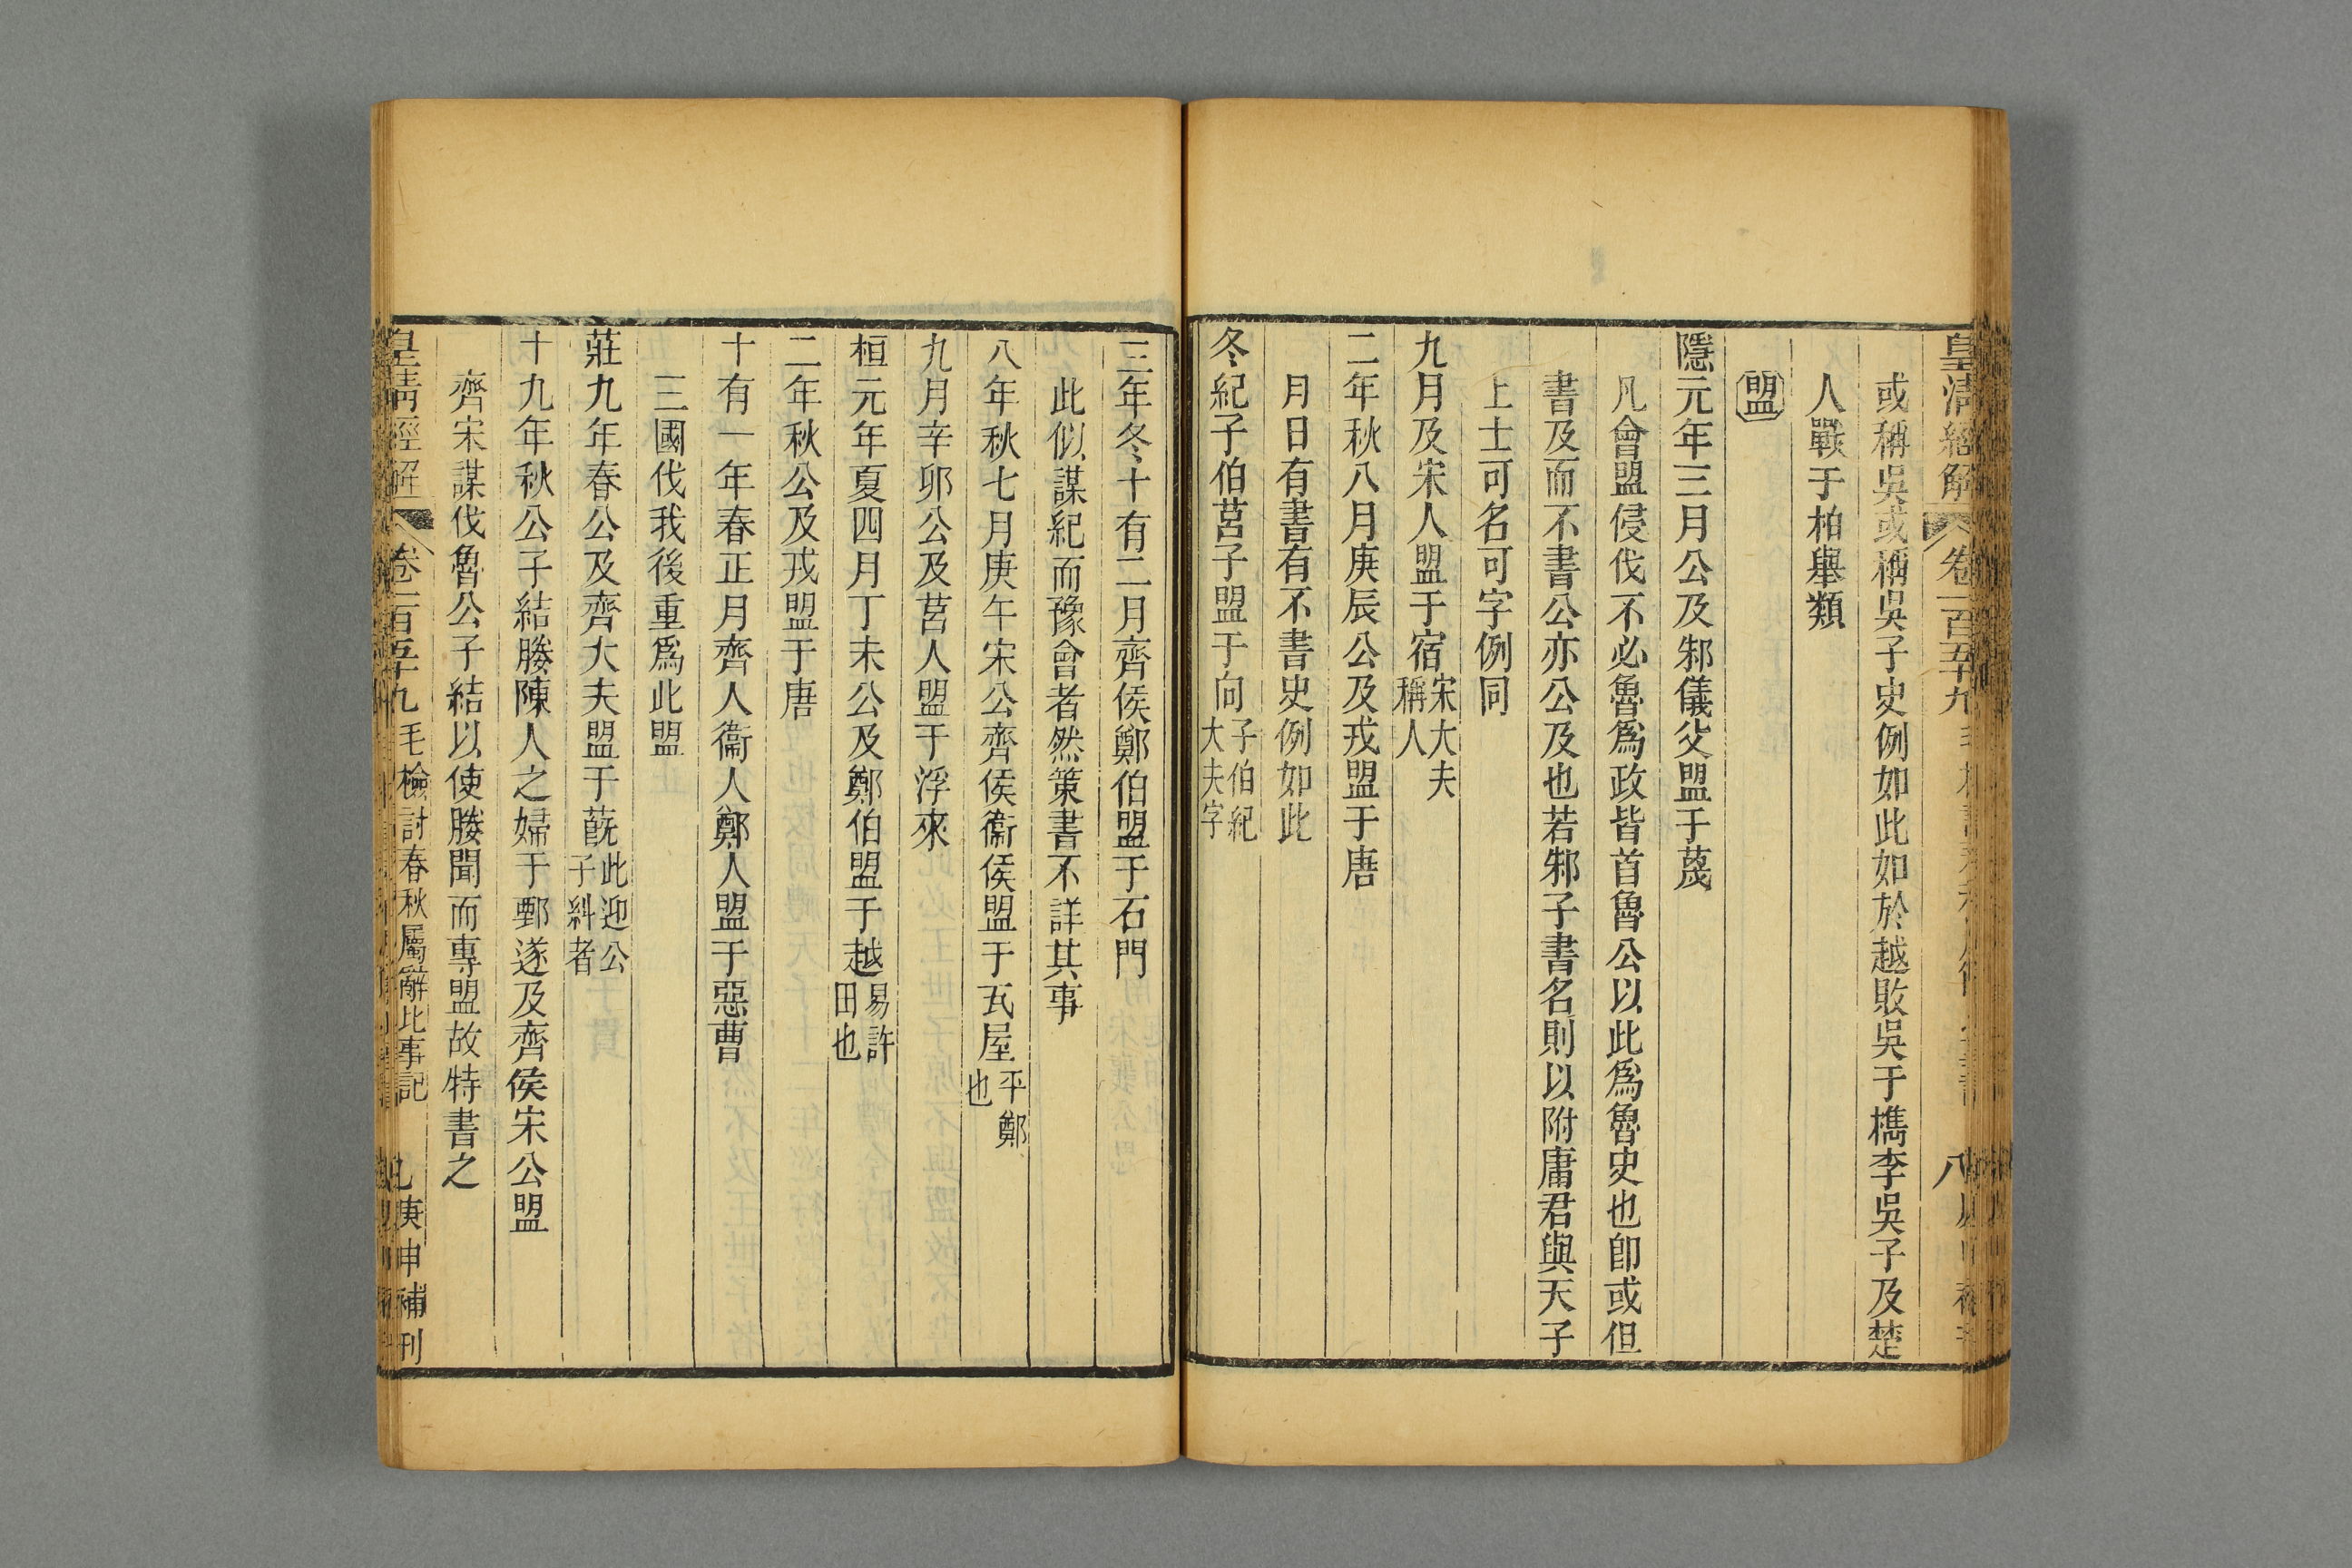 皇清經解 卷一百五十九 八
或稱吳或稱吳子史例如此如於越敗吳于檇李吳子及楚
人戰于柏舉類
盟
隱元年三月公及邾儀父盟于蔑
凡會盟侵伐不必魯爲政皆首魯公以此爲魯史也卽或但
書及而不書公亦公及也若邾子書名則以附庸君與天子
上士可名可字例同
九月及宋人盟于宿宋大夫稱人
二年秋八月庚辰公及戎盟于唐
月日有書有不書史例如此
冬紀子伯莒子盟于向子伯紀大夫字
三年冬十有二月齊侯鄭伯盟于石門
此似謀紀而豫會者然策書不詳其事
八年秋七月庚午宋公齊侯衞侯盟于瓦屋平鄭也
九月辛卯公及莒人盟于浮來
桓元年夏四月丁未公及鄭伯盟于越易許田也
二年秋公及戎盟于唐
十有一年春正月齊人衞人鄭人盟于惡曹
三國伐我後重爲此盟
莊九年春公及齊大夫盟于蔇此迎公子糾者
十九年秋公子結媵陳人之婦于鄄遂及齊侯宋公盟
齊宋謀伐魯公子結以使媵聞而專盟故特書之
皇淸經解 卷一百五十九 毛檢討春秋屬辭比事記 庚申補刊